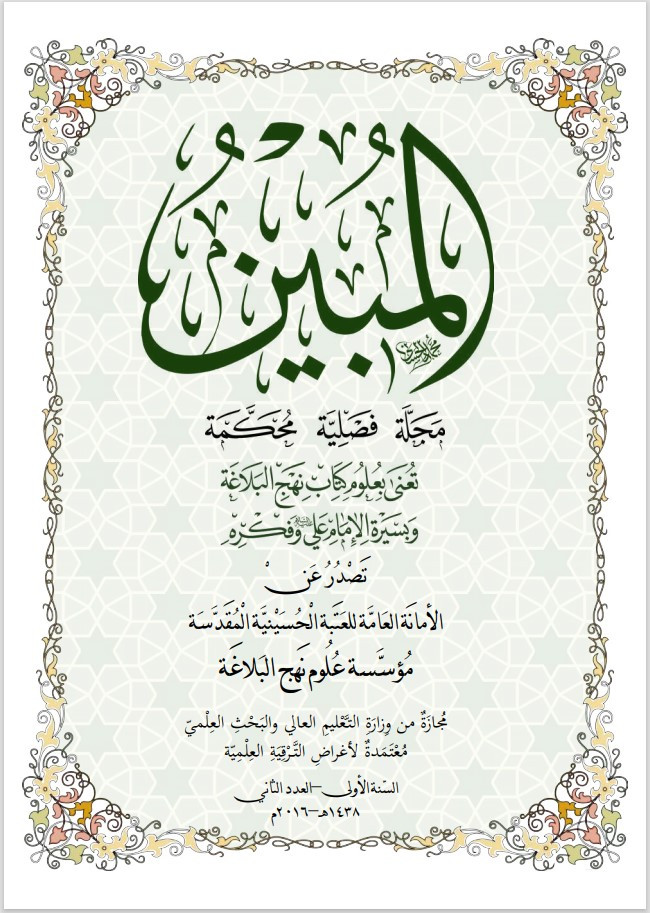 المُبِيْن
مَجَلَّة فَصْلِيَّة مُحَكَّمَة
تُعْنَى بِعُلُومِ كِتَابِ نَهْجِ البَلَاغَة
وَبِسِيْرَةِ الإِمَامِ عَلِي عليه السلام وَفِكْرِهِ
تَصْدُرُ عَنْ
الأمانَة العَامَّة للعَتَبة الْحُسَيْنِيَّة الْمُقَدَّسَة
مُؤسَّسة عُلُوم نَهج البَلاغَة
مُجازَةٌ من وِزارَةِ التَّعْليمِ العالي والبَحْثِ العِلْميّ
مُعْتَمَدةٌ لأغراضِ التَّرْقِيَةِ العِلْمِيّة
السّنة الأولى–العدد الثاني
١٤٣٨هـ–٢٠١٦م